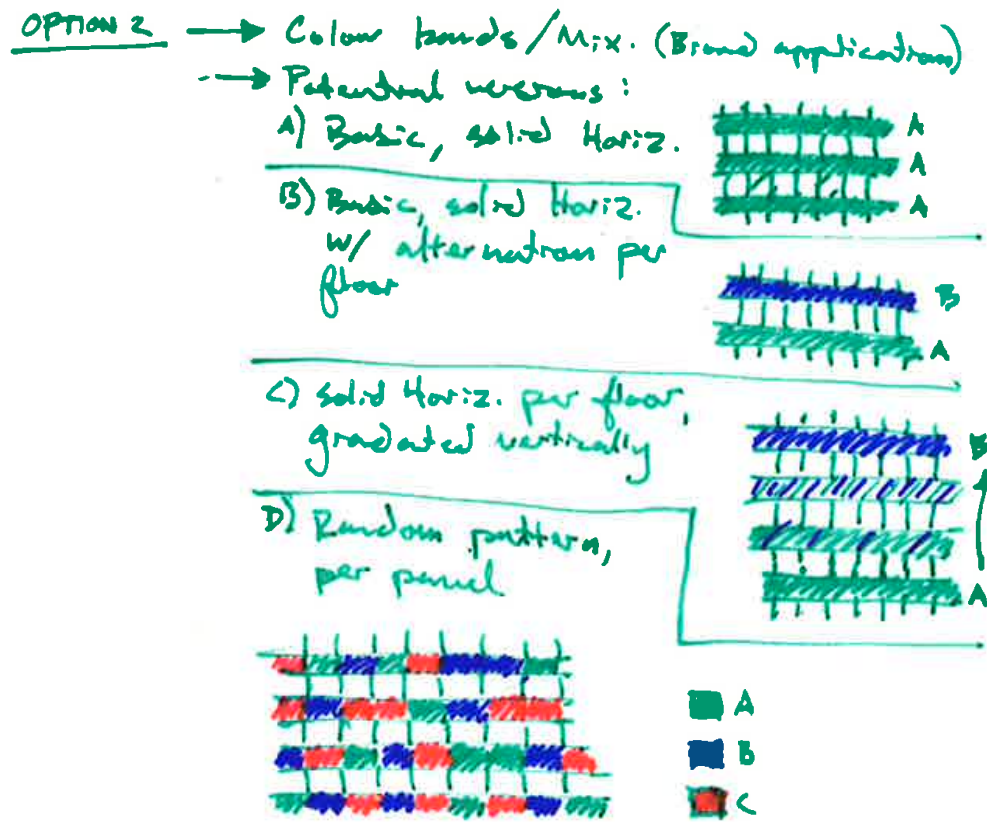 OPTION 2 → Colour bands/Mix. (Brand application)
→ Potential versions:
A) Basic, solid Horiz.
A
A
A
B) Basic, solid Horiz.
w/ alternation per
floor
B
A
C) solid Horiz. per floor,
graduated vertically
B
A
D) Random pattern,
per panel
A
B
C